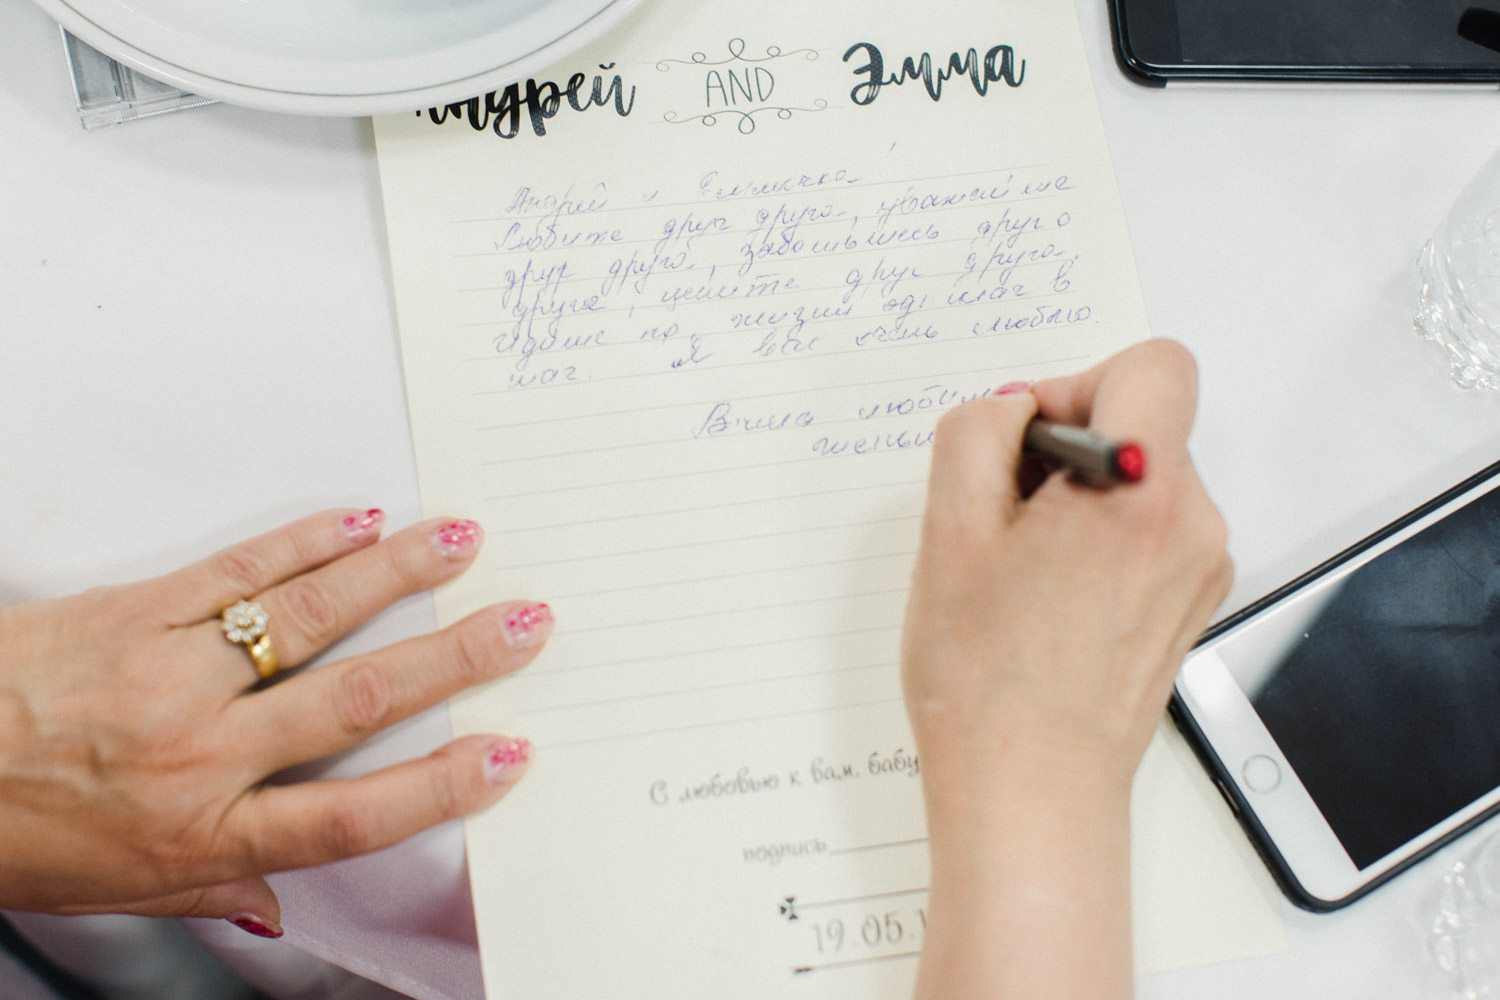 Андрей AND Эмма
Андрей и Эммочка
Любите друг друга, уважайте
друг друга, заботьтесь друг о
друге, цените друг друга.
Идите по жизни
шаг. Я вас очень люблю.
Ваша
С любовью к вам,
подпись
19.05.1